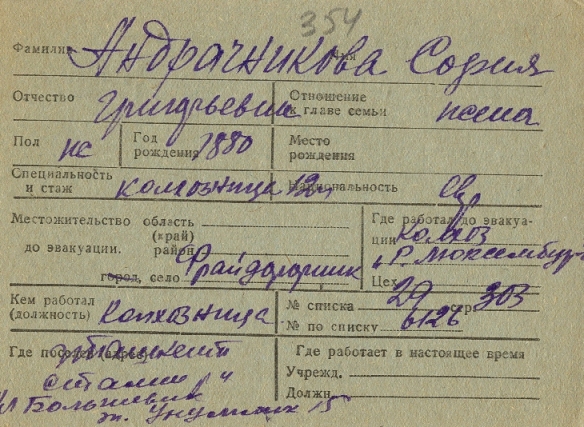 354
Фамилия Андрачникова Имя София
Отчество Григорьевна Отношение к главе семьи жена
Пол ж Год рождения 1880 Место рождения
Специальность и стаж колхозница 12л Национальность евр
Местожительство до эвакуации. область (край) район
город, село Фрайдорфский
Где работал до эвакуации колхоз
"Р. Люксембург"
Цех
Кем работал (должность) колхозница
№ списка 29 стр. 303
№ по списку 6126
Где поселен (адрес) Ташкент
Где работает в настоящее время
Учрежд.
Должн.
Сталин р-н
ул Большевик
15